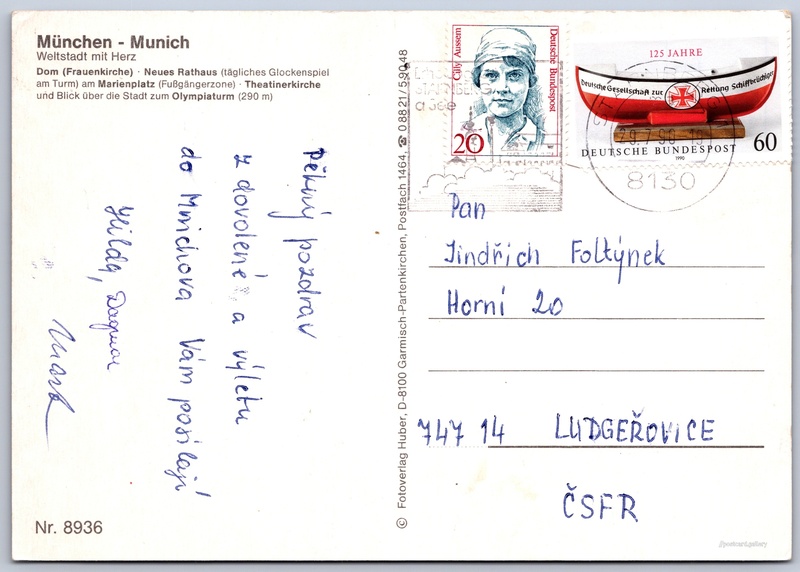 München - Munich
Weltstadt mit Herz
Dom (Frauenkirche) · Neues Rathaus (tägliches Glockenspiel
am Turm) am Marienplatz (Fußgängerzone) · Theatinerkirche
und Blick über die Stadt zum Olympiaturm (290 m)
Pěkný pozdrav
z dovolené a výletu
do Mnichova Vám posílají
Hilda, Dagmar
Nr. 8936
© Fotoverlag Huber, D-8100 Garmisch-Partenkirchen, Postfach 1464, ☎ 0 88 21 / 5 90 48
Cilly Aussem
Deutsche Bundespost
20
125 JAHRE
Deutsche Gesellschaft zur Rettung Schiffbrüchiger
DEUTSCHE BUNDESPOST
60
1990
STARNBERG
a See
29.7.90
8130
Pan
Jindřich Foltýnek
Horní 20
747 14 LUDGEŘOVICE
ČSFR